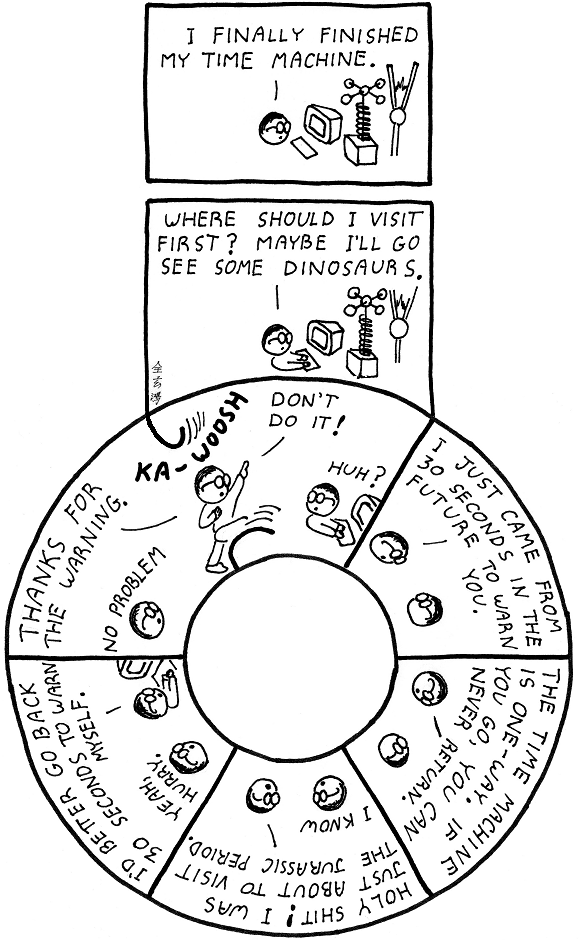 I FINALLY FINISHED
MY TIME MACHINE.
WHERE SHOULD I VISIT
FIRST? MAYBE I'LL GO
SEE SOME DINOSAURS.
KA-WOOSH
DON'T
DO IT!
HUH?
I JUST CAME FROM
30 SECONDS IN THE
FUTURE TO WARN
YOU.
THE TIME MACHINE
IS ONE-WAY. IF
YOU GO, YOU CAN
NEVER RETURN.
HOLY SHIT! I WAS
JUST ABOUT TO VISIT
THE JURASSIC PERIOD.
I KNOW
I'D BETTER GO BACK
30 SECONDS TO WARN
MYSELF.
YEAH,
HURRY.
THANKS FOR
THE WARNING.
NO PROBLEM